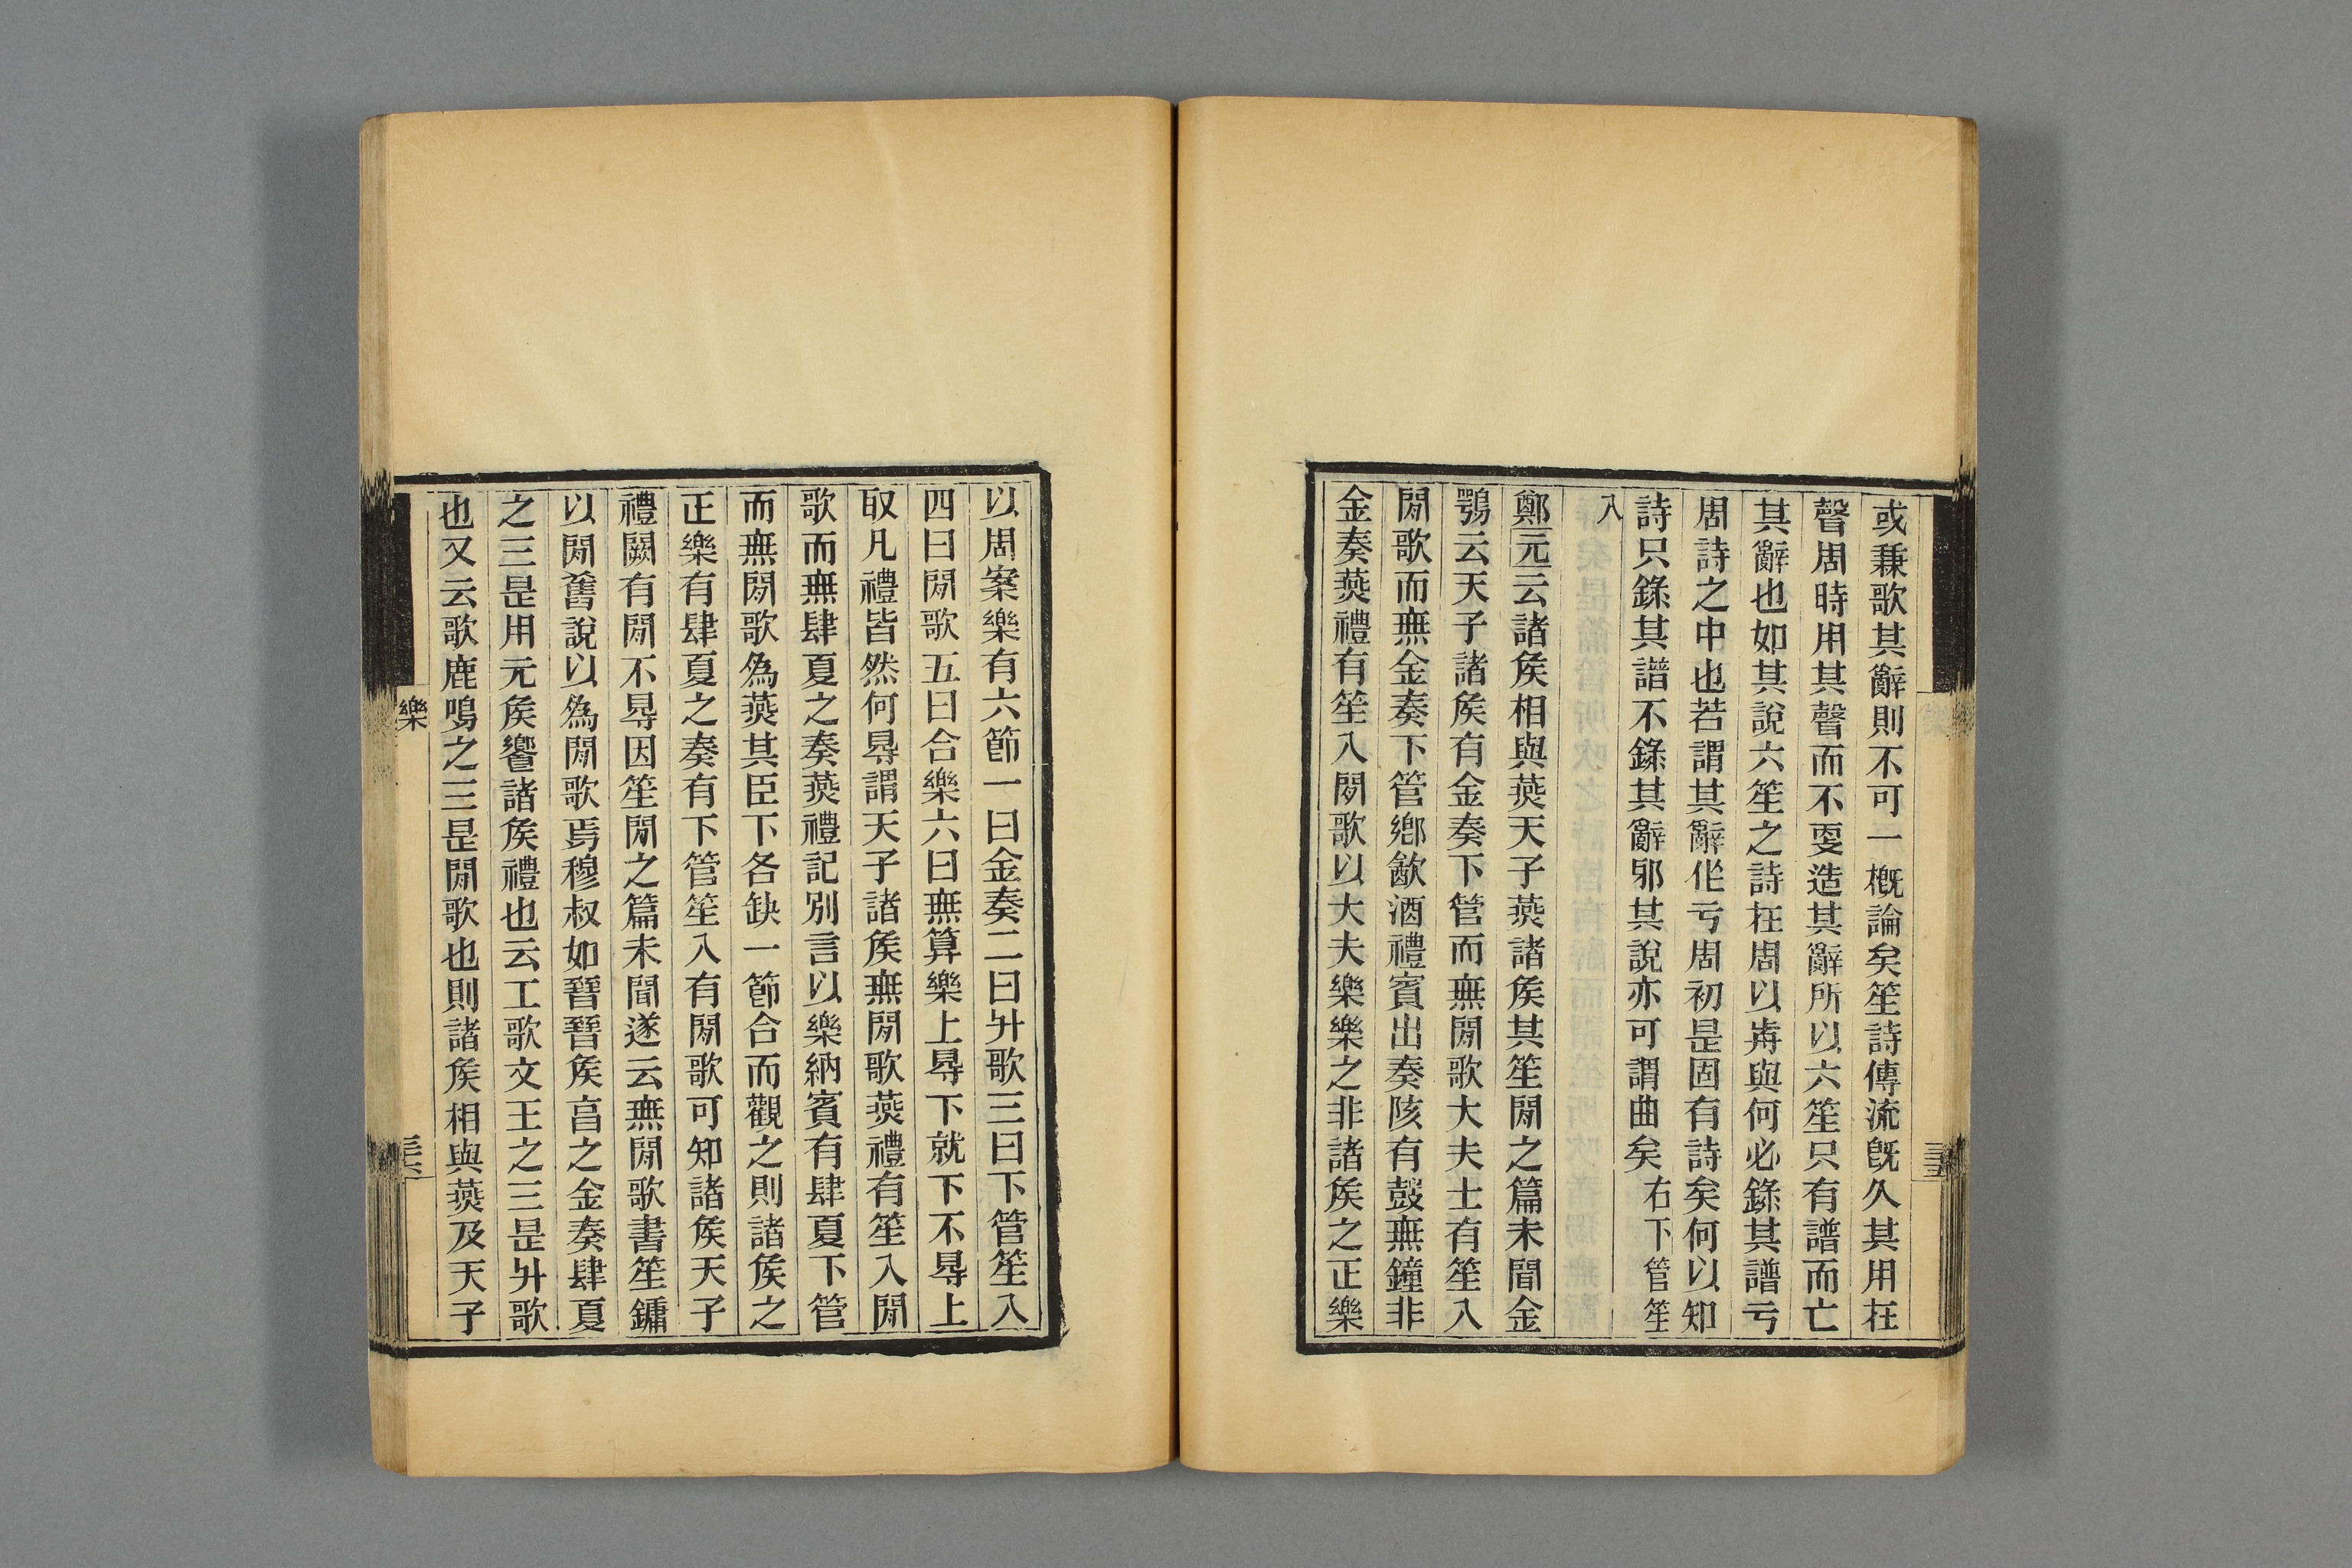 或兼歌其辭則不可一槪論矣笙詩傳流旣久其用在
聲周時用其聲而不㪅造其辭所以六笙只有譜而亡
其辭也如其說六笙之詩在周以歬與何必錄其譜亏
周詩之中也若謂其辭𠈇亏周初是固有詩矣何以知
詩只錄其譜不錄其辭邪其說亦可謂曲矣右下管笙
入
鄭元云諸矦相與燕天子燕諸矦其笙閒之篇未聞金
鶚云天子諸矦有金奏下管而無閒歌大夫士有笙入
閒歌而無金奏下管鄉㱃酒禮賓出奏陔有鼓無鐘非
金奏燕禮有笙入閒歌以大夫樂樂之非諸矦之正樂
以周案樂有六節一曰金奏二曰升歌三曰下管笙入
四曰閒歌五曰合樂六曰無算樂上㝵下就下不㝵上
取凡禮皆然何㝵謂天子諸矦無閒歌燕禮有笙入閒
歌而無肆夏之奏燕禮記別言以樂納賓有肆夏下管
而無閒歌爲燕其臣下各缺一節合而觀之則諸矦之
正樂有肆夏之奏有下管笙入有閒歌可知諸矦天子
禮闕有閒不㝵因笙閒之篇未聞遂云無閒歌書笙鏞
以閒舊說以爲閒歌焉穆叔如晉晉矦亯之金奏肆夏
之三是用元矦饗諸矦禮也云工歌文王之三是升歌
也又云歌鹿鳴之三是閒歌也則諸矦相與燕及天子
樂